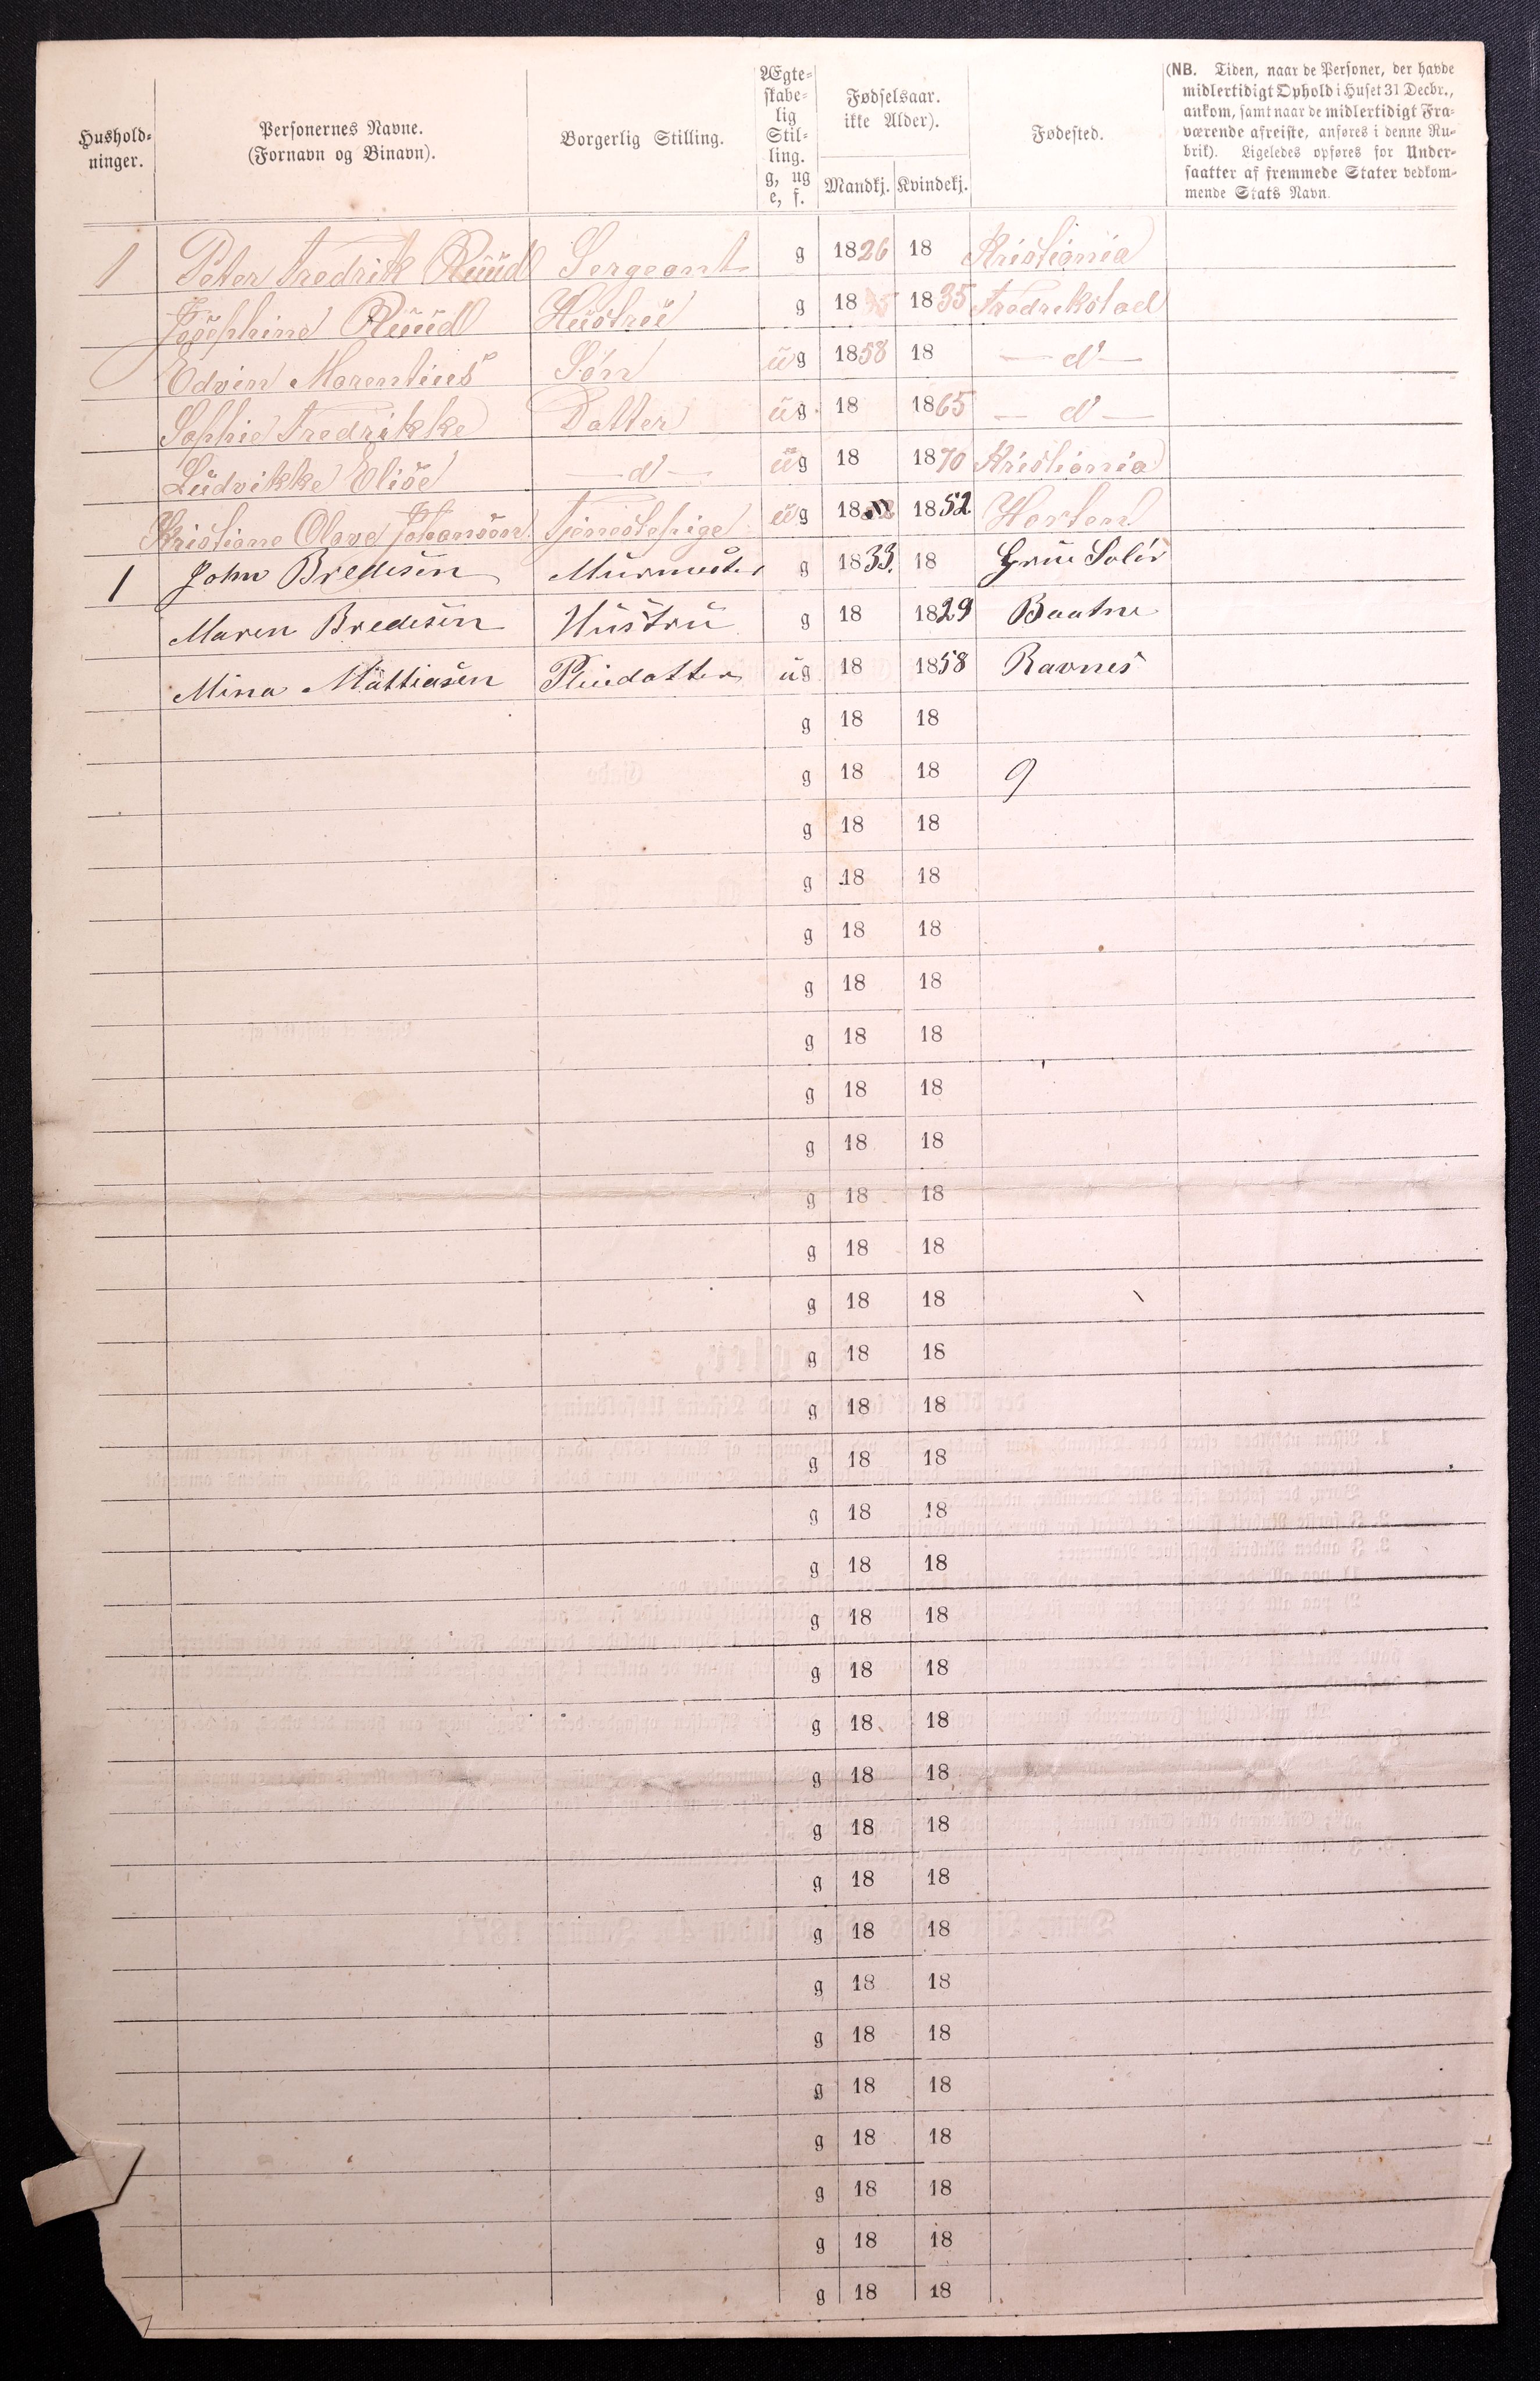 Hushold-
ninger.
Personernes Navne.
(Fornavn og Binavn).
Borgerlig Stilling.
Ægte-
skabe-
lig
Stil-
ling.
g, ug
e, f.
Fødselsaar.
ikke Alder).
Mandkj. Kvindekj.
Fødested.
(NB. Tiden, naar de Personer, der havde
midlertidigt Ophold i Huset 31 Decbr.,
ankom, samt naar de midlertidigt Fra-
værende afreiste, anføres i denne Ru-
brik). Ligeledes opføres for Under-
saatter af fremmede Stater vedkom-
mende Stats Navn.
1 Peter Fredrik Ruud Sergeant g 1826 18 Kristiania
Josephine Ruud Hustrue g 18 1835 Fredrekstad
Edvin Marentius Søn ug 1858 18 — d° —
Sophie Fredrikke Datter ug 18 1865 — d° —
Ludvikke Elise — d° — ug 18 1870 Kristiania
Kristiane Olave Johanson Tjenestepige ug 18 1852 Horten
1 John Bredesen Murmester g 1833. 18 Grue Solør
Maren Bredesen Hustru g 18 1829 Baatne
Mina Mattiasen Pleiedatter ug 18 1858 Ravnes
g 18 18
g 18 18 9
g 18 18
g 18 18
g 18 18
g 18 18
g 18 18
g 18 18
g 18 18
g 18 18
g 18 18
g 18 18
g 18 18
g 18 18
g 18 18
g 18 18
g 18 18
g 18 18
g 18 18
g 18 18
g 18 18
g 18 18
g 18 18
g 18 18
g 18 18
g 18 18
g 18 18
g 18 18
g 18 18
g 18 18
g 18 18